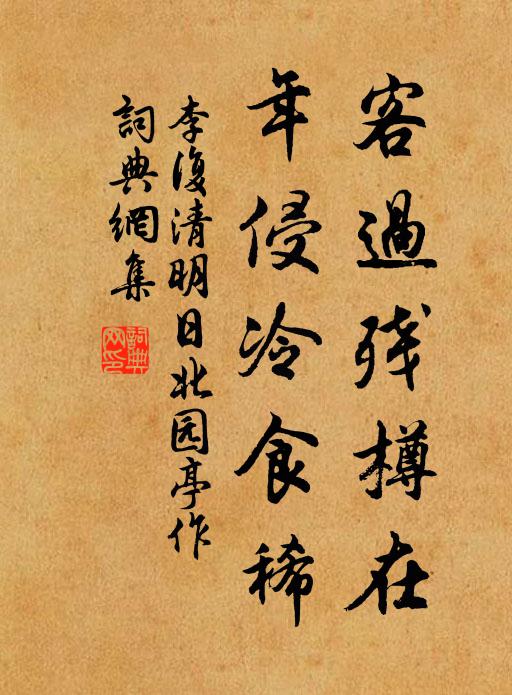 客過残樽在
年侵冷食稀
李復清明日北园亭作
詞典網集
詞典網印